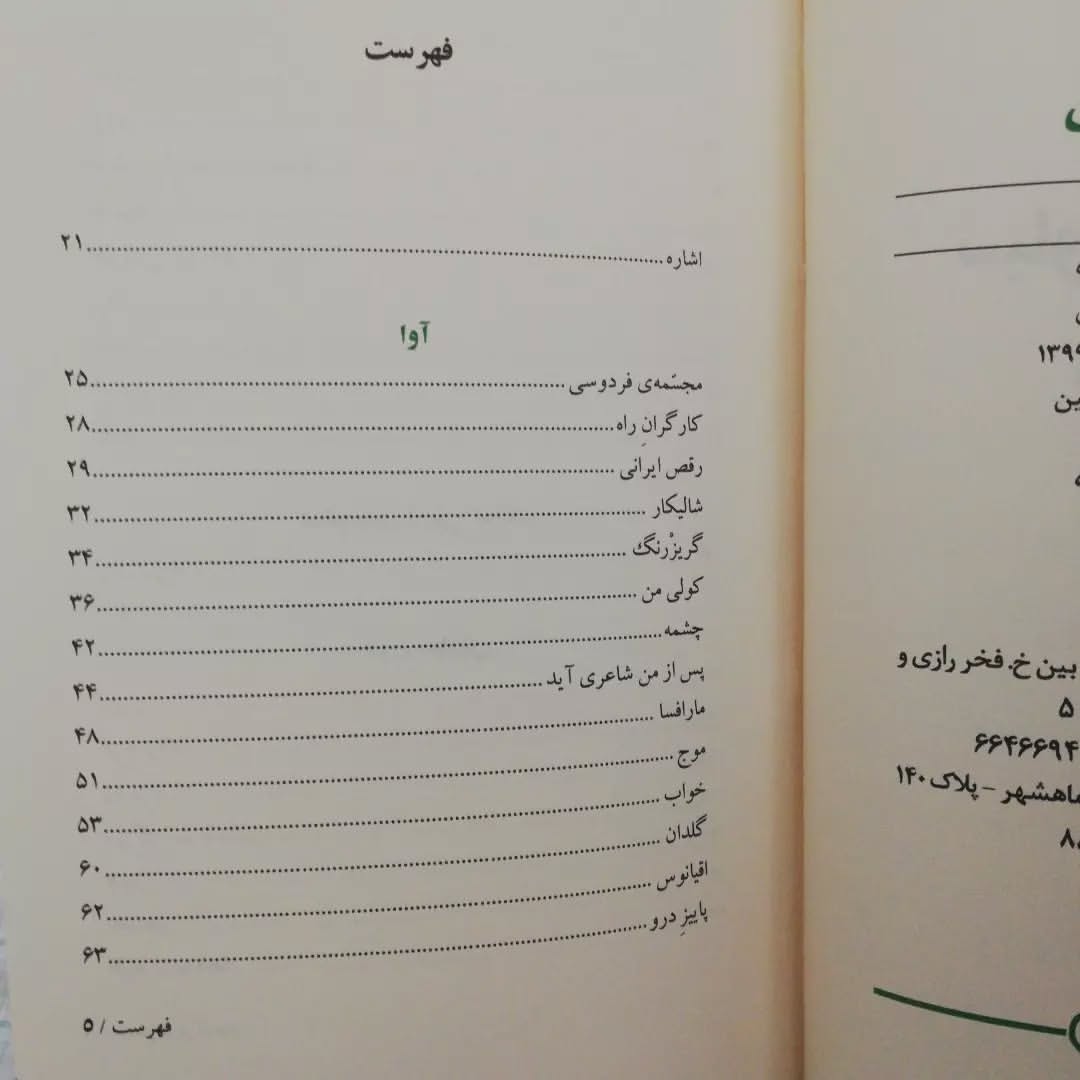 فهرست
اشاره ........ ۲۱
آوا
مجسّمه‌ی فردوسی ........ ۲۵
کارگرانِ راه ........ ۲۸
رقص ایرانی ........ ۲۹
شالیکار ........ ۳۲
گریزْرنگ ........ ۳۴
کولی من ........ ۳۶
چشمه ........ ۴۲
پس از من شاعری آید ........ ۴۴
مارافسا ........ ۴۸
موج ........ ۵۱
خواب ........ ۵۳
گلدان ........ ۶۰
اقیانوس ........ ۶۲
پاییزِ درو ........ ۶۳
فهرست / ۵
بین خ. فخر رازی و
۵
۶۴۶۶۹۴
ماهشهر – پلاک ۱۴۰